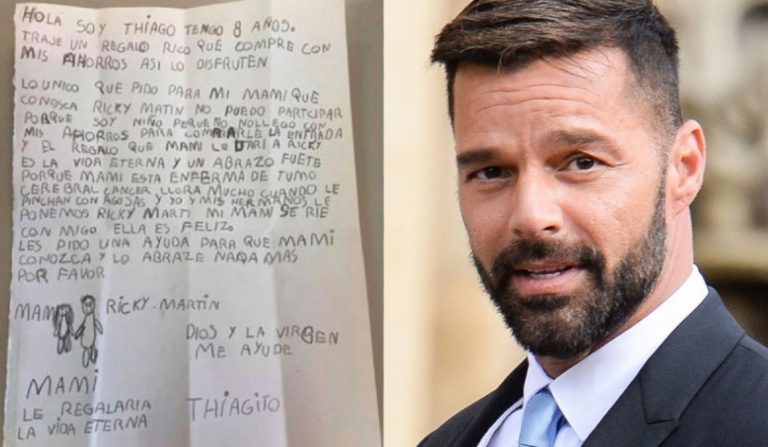 HOLA SOY THIAGO TENGO 8 AÑOS.
TRAJE UN REGALO RICO QUE COMPRE CON
MIS AHORROS ASI LO DISFRUTEN
LO UNICO QUE PIDO PARA MI MAMI QUE
CONOSCA RICKY MATIN NO PUEDO PARTCIPAR
PORQUE SOY NIÑO PEQUEÑO NOLLEGO CON
MIS AHORROS PARA COMPRARLE LA ENTRADA
Y EL REGALO QUE MAMI LE DARI A RICKY
ES LA VIDA ETERNA Y UN ABRAZO FUETE
PORQUE MAMI ESTA ENFERMA DE TUMO
CEREBRAL CANCER LLORA MUCHO CUANDO LE
PINCHAN CON AGUJAS Y YO Y MIS HERMANOS LE
PONEMOS RICKY MARTI MI MAMI SE RIE
CON MIGO ELLA ES FELIZ.
LES PIDO UNA AYUDA PARA QUE MAMI
CONOZCA Y LO ABRAZE NADA MAS
POR FAVOR
MAMI RICKY MARTIN
DIOS Y LA VIRGEN
ME AYUDE
MAMI
LE REGALARIA
LA VIDA ETERNA
THIAGITO